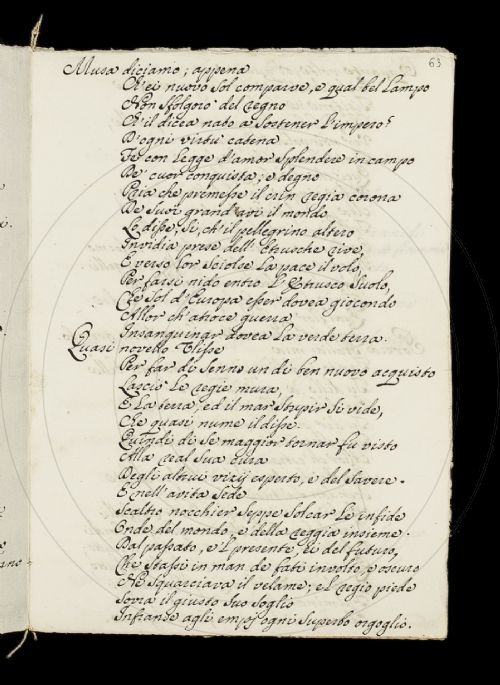 63
Musa diciamo; appena
Ch'ei nuovo Sol comparve, e qual bel Lampo
Non sfolgorò del regno
Ch'il dicea nato a sostener l'impero?
D'ogni virtù catena
Fe con Legge d'amor splendere in campo
De' cuor conquista; e degno
Pria che premesse il crin regia corona
De suoi grand'avi il mondo
Lo disse, Sì, ch'il pellegrino altero
Invidia prese dell'Etrusche rive,
E verso lor sciolse La pace il volo,
Per farsi nido entro l'Etrusco Suolo,
Che Sol d'Europa esser dovea giocondo
Allor ch'atroce guerra
Insanguingr dovea La verde terra.
Quasi novello Ulisse
Per far di senno un dì ben nuovo acquisto
Lasciò Le regie mura,
E La terra, ed il mar stupir si vide,
Che quasi nume il disse.
Quindi di se maggior tornar fu visto
Alla real sua cura
Degli altrui vizij esperto, e del savere.
E nell'avita sede
Scaltro nocchier seppe solcar Le infide
Onde del mondo, e della reggia insieme.
Dal passato, e'l presente, ei del futuro,
Che stassi in man de fati involto, e oscuro
Ne squarciava il velame; e'l regio piede
Sovra il giusto suo soglio
Infranse agli empj ogni superbo orgoglio.